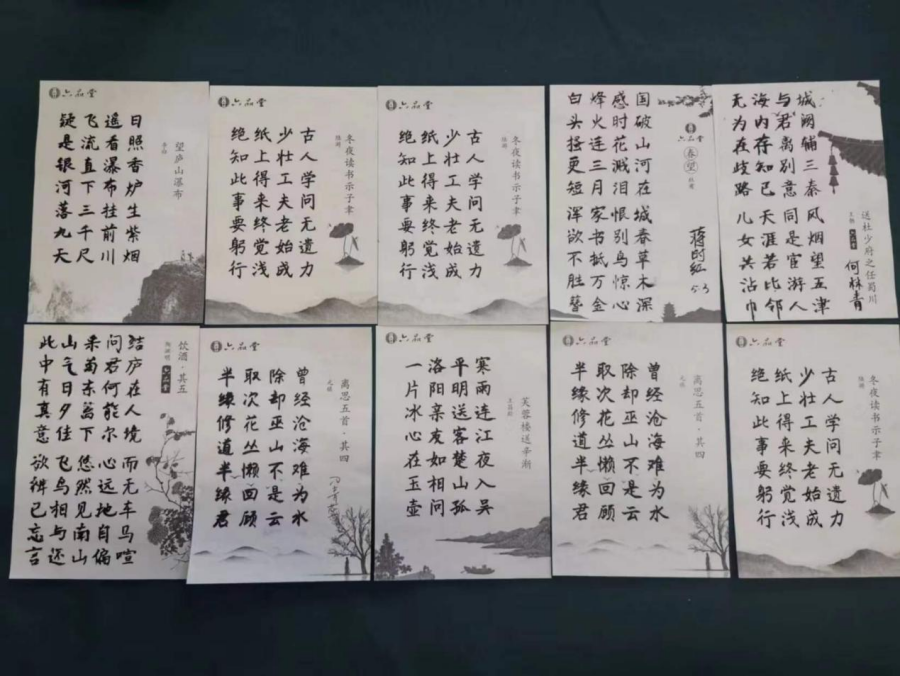 六品堂
望庐山瀑布
李白
日照香炉生紫烟
遥看瀑布挂前川
飞流直下三千尺
疑是银河落九天
六品堂
冬夜读书示子聿
陆游
古人学问无遗力
少壮工夫老始成
纸上得来终觉浅
绝知此事要躬行
六品堂
冬夜读书示子聿
陆游
古人学问无遗力
少壮工夫老始成
纸上得来终觉浅
绝知此事要躬行
六品堂
春望
杜甫
国破山河在城春草木深
感时花溅泪恨别鸟惊心
烽火连三月家书抵万金
白头搔更短浑欲不胜簪
5.3
送杜少府之任蜀川
王勃 六品堂
城阙辅三秦风烟望五津
与君离别意同是宦游人
海内存知己天涯若比邻
无为在歧路儿女共沾巾
饮酒·其五
陶渊明 六品堂
结庐在人境而无车马喧
问君何能尔心远地自偏
采菊东篱下悠然见南山
山气日夕佳飞鸟相与还
此中有真意欲辨已忘言
六品堂
离思五首·其四
元稹
曾经沧海难为水
除却巫山不是云
取次花丛懒回顾
半缘修道半缘君
六品堂
芙蓉楼送辛渐
王昌龄
寒雨连江夜入吴
平明送客楚山孤
洛阳亲友如相问
一片冰心在玉壶
六品堂
离思五首·其四
元稹
曾经沧海难为水
除却巫山不是云
取次花丛懒回顾
半缘修道半缘君
六品堂
冬夜读书示子聿
陆游
古人学问无遗力
少壮工夫老始成
纸上得来终觉浅
绝知此事要躬行